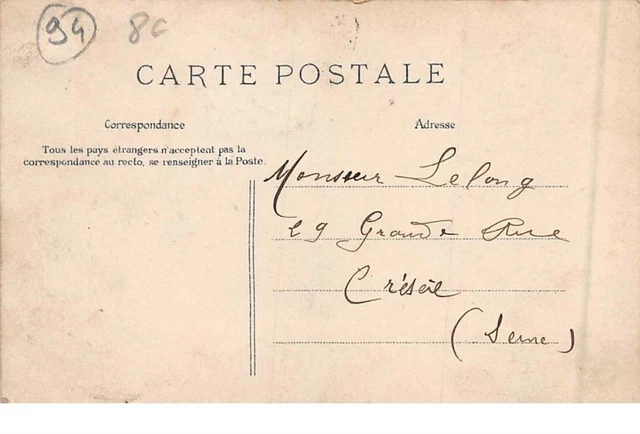 94 8€
CARTE POSTALE
Correspondance
Adresse
Tous les pays étrangers n'acceptent pas la
correspondance au recto, se renseigner à la Poste.
Monsieur Lelong
29 Grande Rue
Créteil
(Seine)